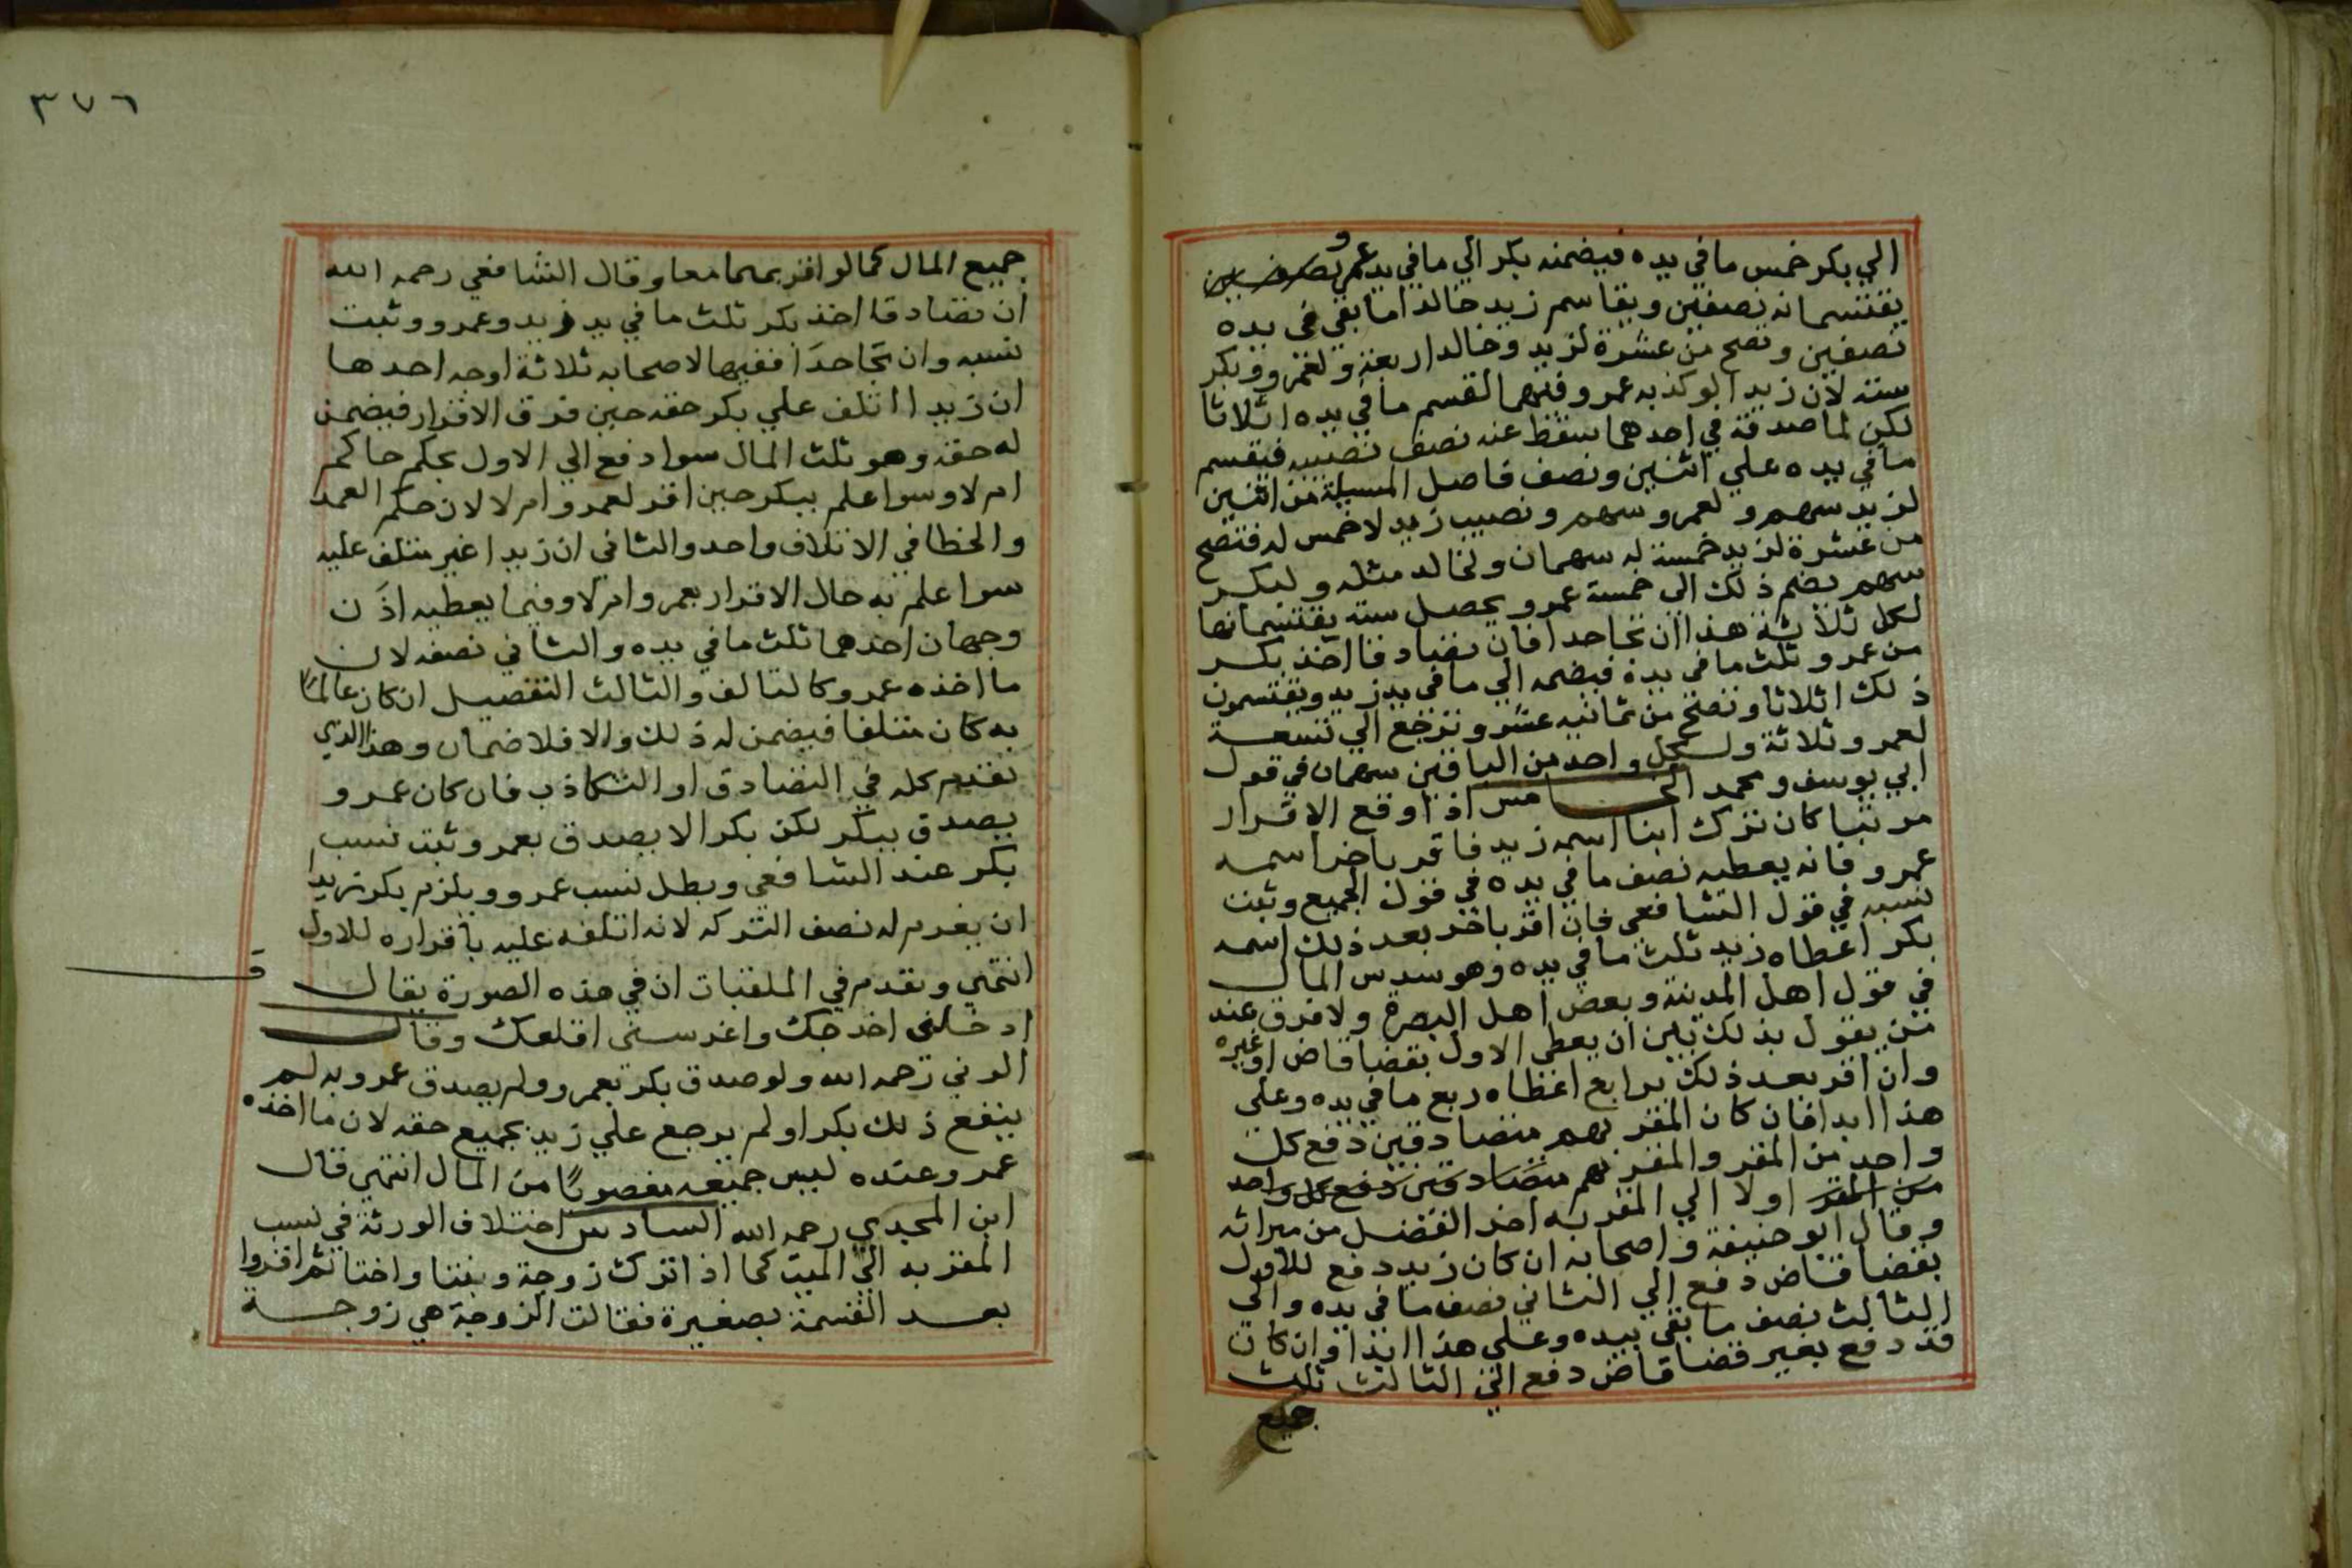 الي بكر خمس ما في يده فيضمنه بكر الي ما في يد عمرو
يقتسمانه نصفين ويقاسم زيد خالدا ما بقي في يده
نصفين وتصح من عشرة لزيد وخالد اربعة ولعمرو وبكر
ستة لان زيدا لو كذبه عمرو فيهما لقسم ما في يده اثلاثا
لكن لما صدقه في احدهما سقط عنه نصف نصيبه فيقسم
ما في يده علي اثنين ونصف فاصل المسيلة من اثنين
لزيد سهم ولعمرو سهم ونصيب زيد لا خمس له فتصح
من عشرة لزيد خمسة له سهمان ولخالد مثله ولبكر
سهم يضم ذلك الي خمسة عمرو يحصل ستة يقتسمانها
لكل ثلاثة هذا ان تجاحدا فان تصادقا اخذ بكر
من عمرو ثلث ما في يده فيضمه الي ما في يد زيد ويقتسمون
ذلك اثلاثا وتصح من ثمانيه عشر وترجع الي تسعة
لعمرو ثلاثة ولكل واحد من الباقين سهمان في قول
ابي يوسف ومحمد الخامس اذا وقع الاقرار
مرتبا كان ترك ابنا اسمه زيد فاقر باخر اسمه
عمرو فانه يعطيه نصف ما في يده في قول الجميع وثبت
نسبه في قول الشافعي فان اقر باخر بعد ذلك اسمه
بكر اعطاه زيد ثلث ما في يده وهو سدس المال
في قول اهل المدينة وبعض اهل البصرة ولا فرق عند
من يقول بذلك بين ان يعطي الاول بقضا قاض او غيره
وان اقر بعد ذلك برابع اعطاه ربع ما في يده وعلي
هذا ابدا فان كان المقر بهم متصادقين دفع كل
واحد من المقر والمقر بهم متصادقين دفع كل واحد
من المقر اولا الي المقر به اخر الفضل من ميراثه
وقال ابو حنيفة واصحابه ان كان زيد دفع للاول
بقضا قاض دفع الي الثاني نصف ما في يده والي
الثالث نصف ما بقي بيده وعلي هذا ابدا وان كان
قد دفع بغير قضا قاض دفع الي الثالث ثلث
جميع
٣٧٦
جميع المال كما لو اقر بهما معا وقال الشافعي رحمه الله
ان تصادقا اخذ بكر ثلث ما في يد زيد وعمرو وثبت
نسبه وان تجاحدا ففيها لاصحابه ثلاثة اوجه احدها
ان زيدا اتلف علي بكر حقه حين فرق الاقرار فيضمن
له حقه وهو ثلث المال سوا دفع الي الاول بحكم حاكم
ام لا وسوا علم ببكر حين اقر لعمرو ام لا لان حكم العمد
والخطا في الاتلاف واحد والثاني ان زيدا غير متلف عليه
سوا علم به حال الاقرار بعمرو ام لا وفيما يعطيه اذن
وجهان احدهما ثلث ما في يده والثاني نصفه لان
ما اخذه عمرو كالتالف والثالث التفصيل ان كان عالما
به كان متلفا فيضمن له ذلك والا فلا ضمان وهذا الذي
تقدم كله في التصادق او التكاذب فان كان عمرو
يصدق ببكر لكن بكرا لا يصدق بعمرو ثبت نسب
بكر عند الشافعي وبطل نسب عمرو ويلزم بكر زيدا
ان يغرم له نصف التركه لانه اتلفه عليه باقراره للاول
انتهي وتقدم في الملقبات ان في هذه الصورة يقال
ادخلني اخرجك واغرسني اقلعك وقال
الوني رحمه الله ولو صدق بكر بعمرو ولم يصدق عمرو به لم
ينفع ذلك بكرا ولم يرجع علي زيد بجميع حقه لان ما اخذه
عمرو عنده ليس جميعه مغصوبا من المال انتهي قال
ابن المجدي رحمه الله السادس اختلاف الورثة في نسب
المقر به الي الميت كما اذا ترك زوجة وبنتا واختا ثم اقروا
بعد القسمة بصغيرة فقالت الزوجة هي زوجة